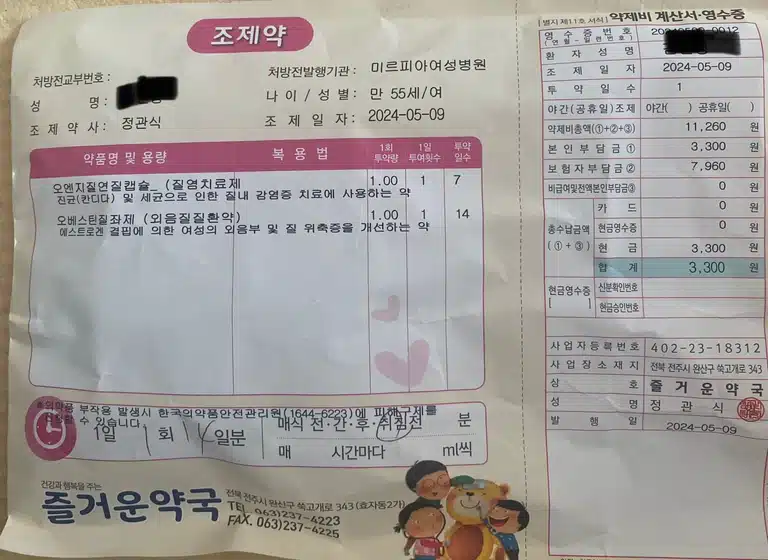 조제약
처방전교부번호 :
처방전발행기관 : 미르피아여성병원
성 명 :
나이 / 성별 : 만 55세/여
조제약사 : 정관식
조제일자 : 2024-05-09
약품명 및 용량 복용법 1회 투약량 1일 투여횟수 투약 일수
오엔지질연질캡슐_ (질염치료제 1.00 1 7
진균(칸디다) 및 세균으로 인한 질내 감염증 치료에 사용하는 약
오베스틴질좌제 (외음질질환약) 1.00 1 14
에스트로겐 결핍에 의한 여성의 외음부 및 질 위축증을 개선하는 약
※의약품 부작용 발생시 한국의약품안전관리원(1644-6223)에 피해구제를
신청할 수 있습니다.
1일 1회 일분 매식 전·간·후·취침전 분
매 시간마다 ml씩
건강과 행복을 주는
즐거운약국
전북 전주시 완산구 쑥고개로 343 (효자동2가)
TEL. 063)237-4223
FAX. 063)237-4225
[별지 제11호 서식] 약제비 계산서·영수증
영수증번호
(연월-일련번호)
환자성명
조제일자 2024-05-09
투약일수 1
야간(공휴일)조제 야간( ) 공휴일( )
약제비총액(①+②+③) 11,260 원
본인부담금① 3,300 원
보험자부담금② 7,960 원
비급여및전액본인부담금③ 0 원
총수납금액 (①+③)
카드 0 원
현금영수증 0 원
현금 3,300 원
합계 3,300 원
현금영수증 [ ]
신분확인번호
현금승인번호
사업자등록번호 402-23-18312
사업장소재지 전북 전주시 완산구 쑥고개로 343
상호 즐거운약국
성명 정관식
발행일 2024-05-09